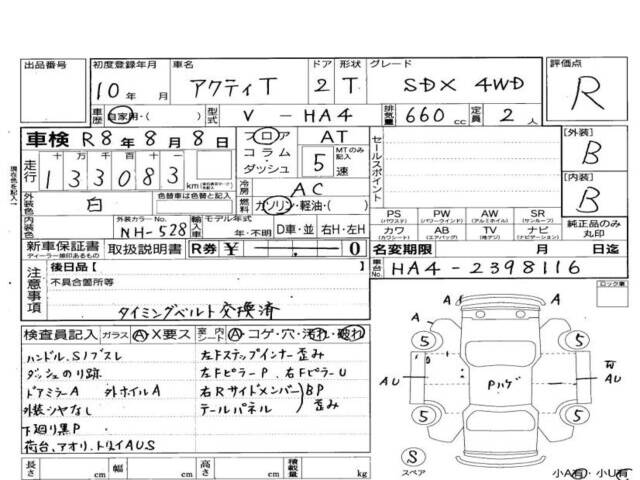 出品番号 初度登録年月 車名 ドア 形状 グレード 評価点
10年 月 アクティT 2 T SDX 4WD R
車歴 自家用・( ) 型式 V - HA4 排気量 660 cc 定員 2 人
車検 R8年8月8日 フロア AT 【外装】
コラム・ MTのみ記入 B
ダッシュ 5 速 セールスポイント
走行 十 万 千 百 十 一
133083 km
冷房 AC 【内装】
外装色 白 色替車は色替と記入 燃料 ガソリン・軽油・( ) B
内装色 外装カラーNo. NH-528 輸入車 モデル年式 年・不明 D車・並 右H・左H
PS PW AW SR
(パワステ) (パワーウインド) (アルミホイル) (サンルーフ)
カワ AB TV ナビ 純正品のみ
(カワシート) (エアバッグ) (地デジ) (ナビゲーション) 丸印
新車保証書 取扱説明書 R券 ¥ 0 名変期限 月 日迄
ディーラー捺印あるもの
車台No. HA4-2398116
注意事項 後日品【 】
不具合箇所等
タイミングベルト交換済
ロック車
検査員記入 ガラス A・X要ス 室内 シート A・コゲ・穴・汚れ・破れ
ハンドル.S1ブスレ 左Fステップインナー歪み
ダッシュのり跡 左FピラーP、右FピラーU
ドアミラーA 外ホイルA 右Rサイドメンバー BP
外装シヤなし テールパネル 歪み
下廻り黒P
荷台、アオリ、トリイAUS
A A A
5 5
AU Pハゲ AU
5 5
S
スペア
小A有・小U有
長さ cm 幅 cm 高さ cm 積載量 kg